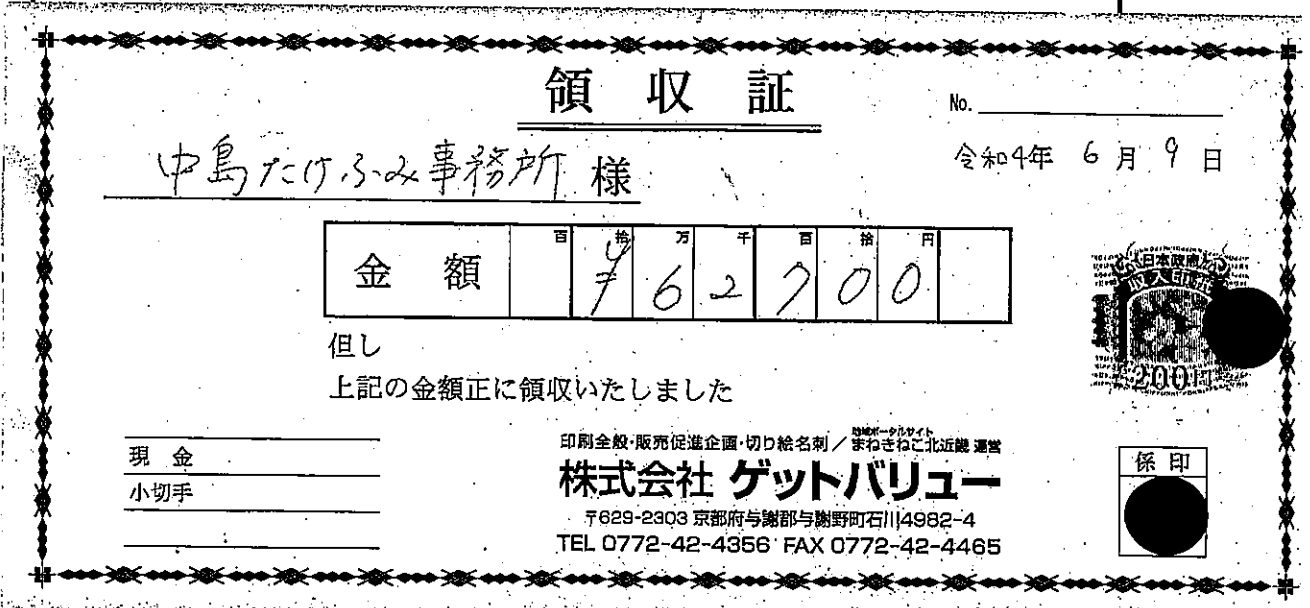 領収証
No.
中島たけふみ事務所 様
令和4年 6月 9日
金額 百 拾 万 千 百 拾 円
¥62700
日本政府
収入印紙
200円
但し
上記の金額正に領収いたしました
現金
小切手
地域ポータルサイト
印刷全般・販売促進企画・切り絵名刺／まねきねこ北近畿 運営
株式会社 ゲットバリュー
〒629-2303 京都府与謝郡与謝野町石川4982-4
TEL 0772-42-4356 FAX 0772-42-4465
係印